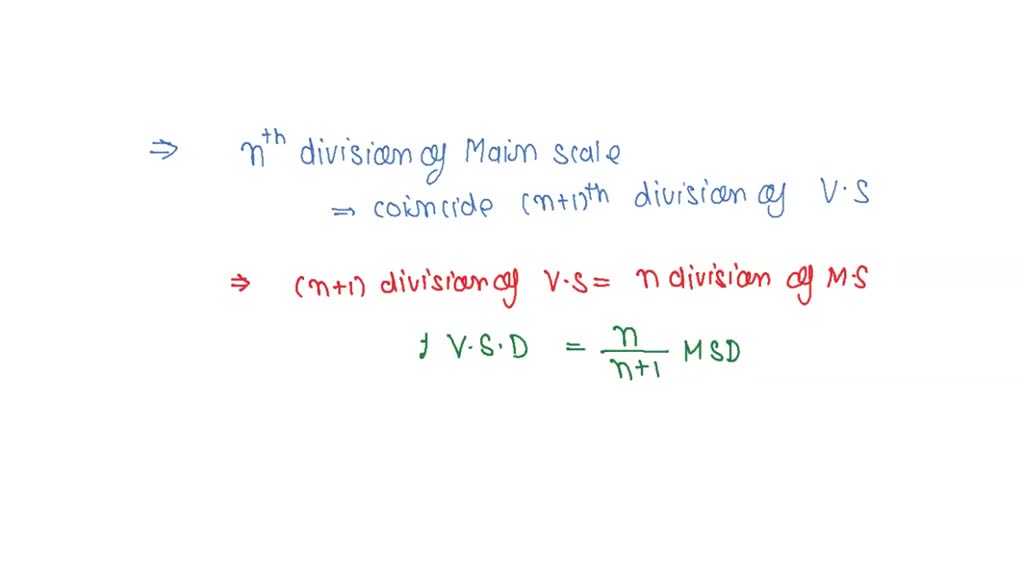 ⇒ nᵗʰ division of Main scale
⇒ coincide (n+1)ᵗʰ division of V.S
⇒ (n+1) division of V.S = n division of M.S
1 V.S.D = n/(n+1) MSD